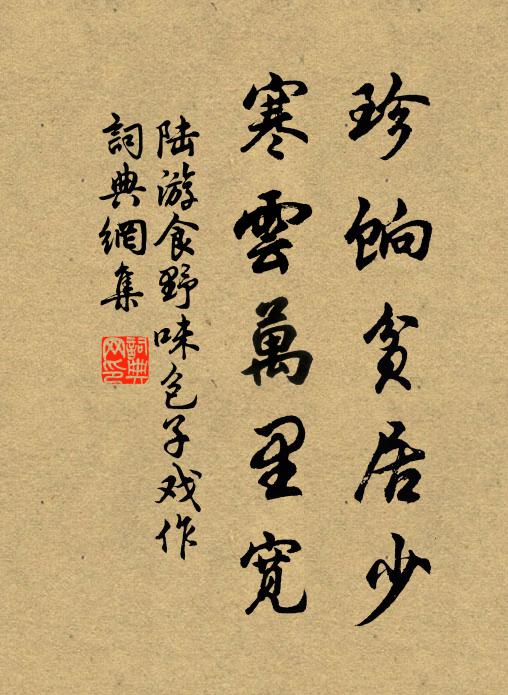 珍餉貧居少
寒雲萬里寬
陆游食野味包子戏作
詞典網集
詞典网印